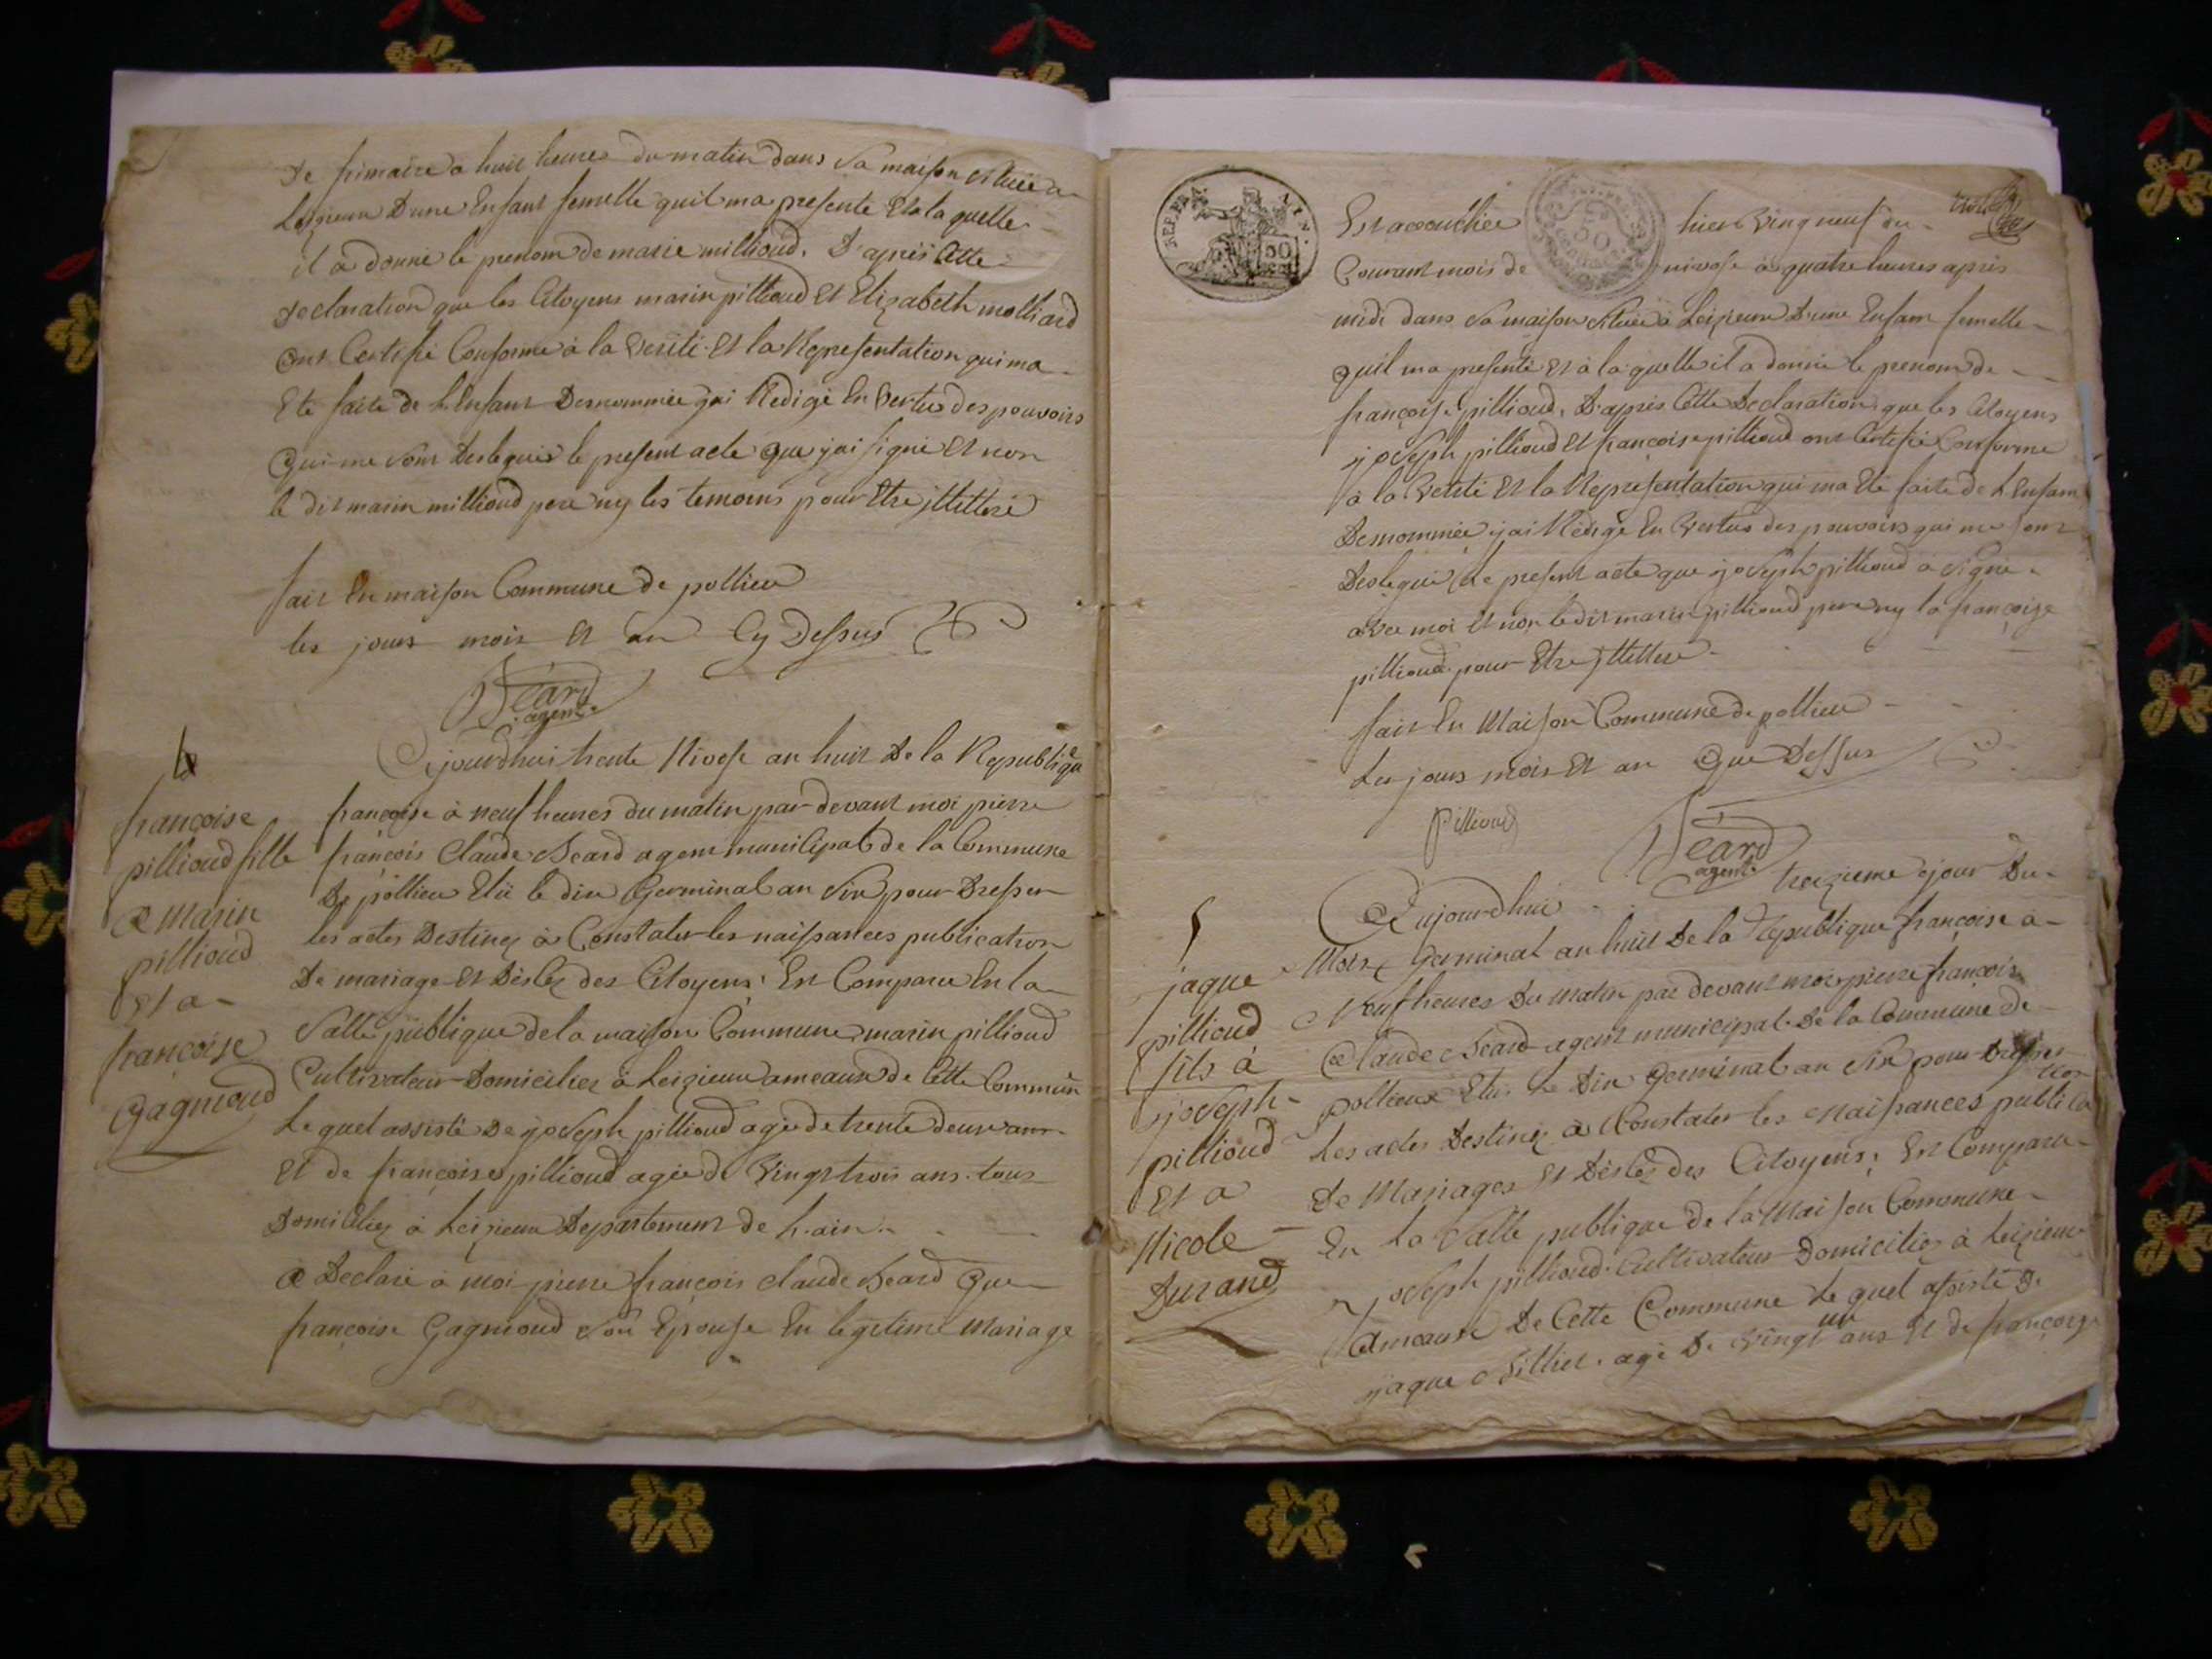 De frimaire a huit heures du matin dans sa maison située a
Leizieux D'une Enfant femelle quil ma presenté Et a la quelle
il a donné le prenom de marie millioud. D'après Cette
Declaration que les Citoyens marin pillioud Et Elizabeth molliard
Ont Certifié Conforme à la verité. Et la Representation qui ma
Eté faite de L'Enfant Denommée j'ai Redigé En Vertus des pouvoirs
Qui me sont Delegués le present acte que j'ai signé Et non
le dit marin millioud pere ny les temoins pour Etre jllitteré
fait En maison Commune de pollieu
les jours mois Et an Cy Dessus
Béard
agent
4
françoise
pillioud fille
a Marin
pillioud
Et a
françoise
Gagnioud
Cejourdhui trente Nivose an huit De la Republique
françoise à neuf heures du matin par devant moi pierre
françois Claude Béard agent municipal de la Commune
De pollieu Elü le dix Germinal an Six pour Dresser
les actes Destinez à Constater les naissances publication
De mariage Et Décès des Citoyens; Est Comparu En la
Salle publique de la maison Commune marin pillioud
Cultivateur Domiciliez à Leizieux ameaux de Cette Commun
Le quel assisté De joseph pillioud agée de trente deux ans
Et de françoise pillioud agée de Vingt trois ans tous
Domiciliez à Leizieux Departement de L'ain
a Declaré à moi pierre françois claude Béard Que
françoise Gagnioud son Epouse En legitime Mariage
REP. FRA.
50
Est accouchée hier Vingt neuf du
Courant mois de nivose à quatre heures après
midi dans sa maison située à Leizieux D'une Enfant femelle
quil ma presenté Et à la quelle il a donné le prenom de
françoise pillioud, D'après Cette Declaration que les Citoyens
joseph pillioud Et françoise pillioud ont Certifié Conforme
à la Verité Et la Representation qui ma Eté faite de L'Enfant
Denommée j'ai Redigé En Vertus des pouvoirs qui me sont
Delegués le present acte que joseph pillioud a signé
avec moi Et non le dit marin pillioud pere ny la françoise
pillioud pour Etre jllitteré
fait En Maison Commune de pollieu
Les jours mois Et an Que Dessus
Pillioud
Béard
agent
5
jaque
pillioud
fils à
joseph
pillioud
Et a
Nicole
Durand
Aujourdhui treizieme jour Du
Mois Germinal an huit De la Republique françoise à
Neuf heures Du matin par devant moi pierre françois
Claude Béard agent municipal De la Commune de
pollieux Elü le Dix Germinal an Six pour Dresser
Les actes Destinez à Constater les Naissances publication
De Mariages Et Décès des Citoyens; Est Comparu
En La Salle publique de la Maison Commune
joseph pillioud Cultivateur Domiciliez à Leizieux
ameaux De Cette Commune Le quel assisté De
jaque Billiet agé De Vingt un ans Et de françoise